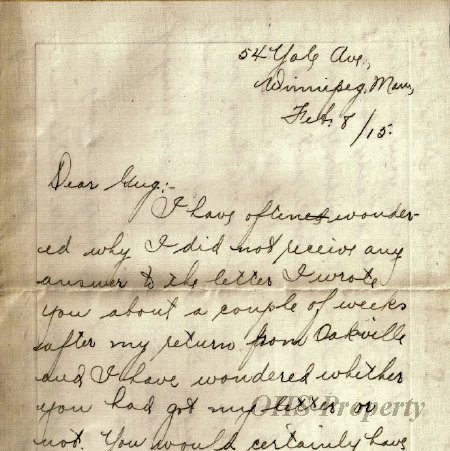 54 Yale Ave,
Winnipeg, Man,
Feb. 8/15.
Dear Gug:-
I have often wonder-
ed why I did not receive any
answer to the letter I wrote
you about a couple of weeks
after my return from Oakville
and I have wondered whether
you had got my letter or
not. You would certainly have
OHS Property